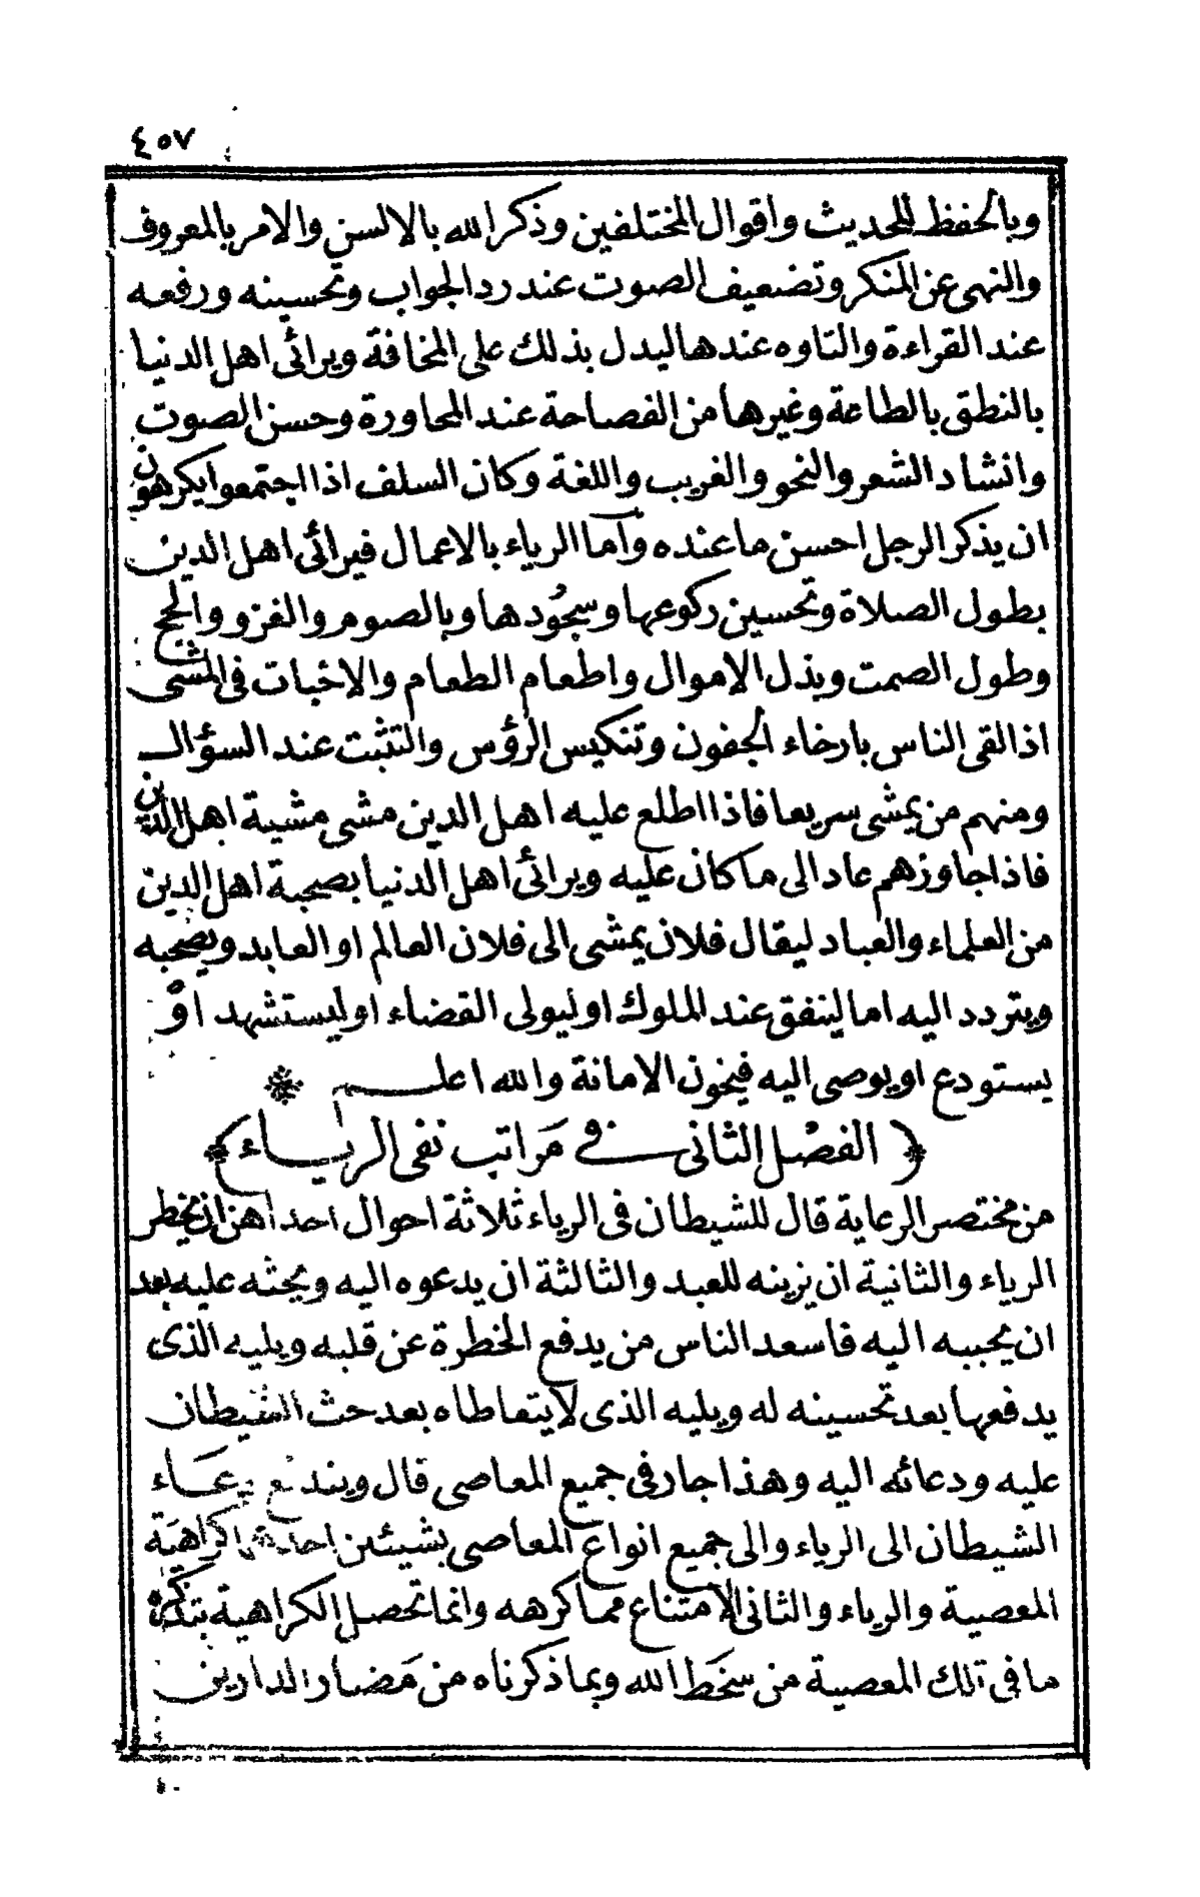 ٤٥٧
وبالحفظ للحديث واقوال المختلفين وذكر الله بالالسن والامر بالمعروف
والنهى عن المنكر وتضعيف الصوت عند رد الجواب وتحسينه ورفعه
عند القراءة والتاوه عندها ليدل بذلك على المخافة ويرائى اهل الدنيا
بالنطق بالطاعة وغيرها من الفصاحة عند المحاورة وحسن الصوت
وانشاد الشعر والنحو والغريب واللغة وكان السلف اذا اجتمعوا يكرهون
ان يذكر الرجل احسن ما عنده وآما الرياء بالاعمال فيرائى اهل الدين
بطول الصلاة وتحسين ركوعها وسجُودها وبالصوم والغزو والحج
وطول الصمت وبذل الاموال واطعام الطعام والاخبات فى المشى
اذا لقى الناس بارخاء الجفون وتنكيس الرؤس والتثبت عند السؤال
ومنهم من يمشى سريعا فاذا اطلع عليه اهل الدين مشى مشية اهل الدين
فاذا جاوزهم عاد الى ما كان عليه ويرائى اهل الدنيا بصحبة اهل الدين
من العلماء والعباد ليقال فلان يمشى الى فلان العالم او العابد ويصحبه
ويتردد اليه اما لينفق عند الملوك او ليولى القضاء او ليستشهد اوْ
يستودع او يوصى اليه فيخون الامانة والله اعلم
﴿ الفصْل الثانى فى مَراتب نفى الرياء ﴾
من مختصر الرعاية قال للشيطان فى الرياء ثلاثة احوال احداهن ان يخطر
الرياء والثانية ان يزينه للعبد والثالثة ان يدعوه اليه ويحثه عليه بعد
ان يحببه اليه فاسعد الناس من يدفع الخطرة عن قلبه ويليه الذى
يدفعها بعد تحسينه له ويليه الذى لا يتعاطاه بعد حث الشيطان
عليه ودعائه اليه وهذا جار فى جميع المعاصى قال ويندفع دعَاء
الشيطان الى الرياء والى جميع انواع المعاصى بشيئين احدهما كراهيَة
المعصية والرياء والثانى الامتناع مما كرهه وانما تحصل الكراهية بتذكره
ما فى تلك المعصية من سخَط الله وبما ذكرناه من مَضار الدارين